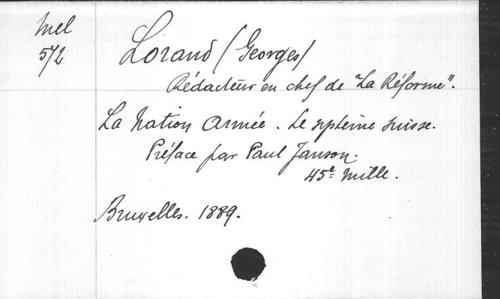 Mel
572
Lorand (Georges)
Rédacteur en chef de "La Réforme".
La Nation Armée. Le système suisse.
Préface par Paul Janson.
45e mille.
Bruxelles. 1889.